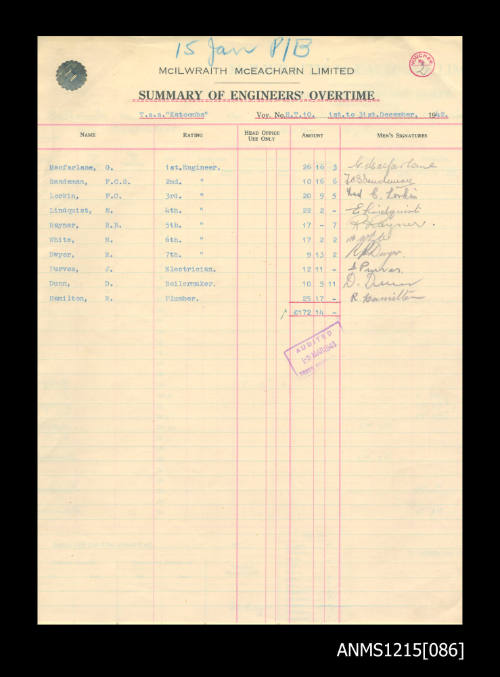 15 Jan P/B
McILWRAITH McEACHARN LIMITED
SUMMARY OF ENGINEERS' OVERTIME
T.s.s."Katoomba" Voy. No. 1st.to 31st.December, 1942.
NAME RATING HEAD OFFICE USE ONLY AMOUNT MEN'S SIGNATURES
Macfarlane, G. 1st.Engineer. 26 16 3 G. Macfarlane
Sandeman, F.C.G. 2nd. " 10 16 6
Lorkin, F.C. 3rd. " 20 9 5 Lorkin
Lindquist, E. 4th. " 22 2 - E. Lindquist
Rayner, R.R. 5th. " 17 - 7 R Rayner.
White, H. 6th. " 17 2 2 White
Dwyer, R. 7th. " 9 13 2 Dwyer
Purves, J. Electrician. 12 11 - J Purves
Dunn, D. Boilermaker. 10 5 11 D. Dunn
Hamilton, R. Plumber. 25 17 - R. Hamilton
£172 14 -
AUDITED
MAR 1943
ANMS1215[086]